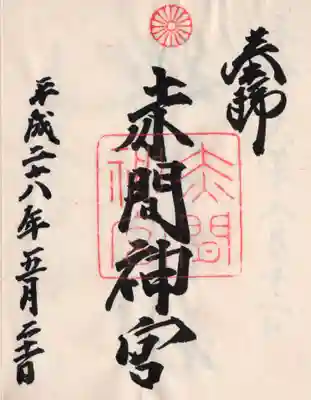 奉拝
赤間神宮
赤間神宮
平成二十八年五月